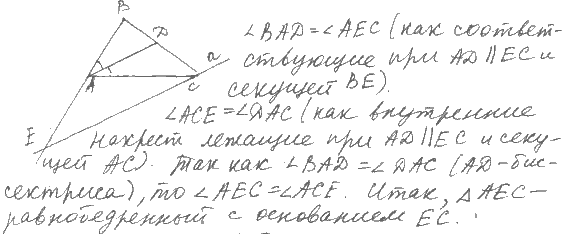 B
D
a
A
C
E
∠BAD=∠AEC (как соответ-
ствующие при AD∥EC и
секущей BE).
∠ACE=∠DAC (как внутренние
накрест лежащие при AD∥EC и секу-
щей AC). Так как ∠BAD=∠DAC (AD-бис-
сектриса), то ∠AEC=∠ACE. Итак, △AEC—
равнобедренный с основанием EC.